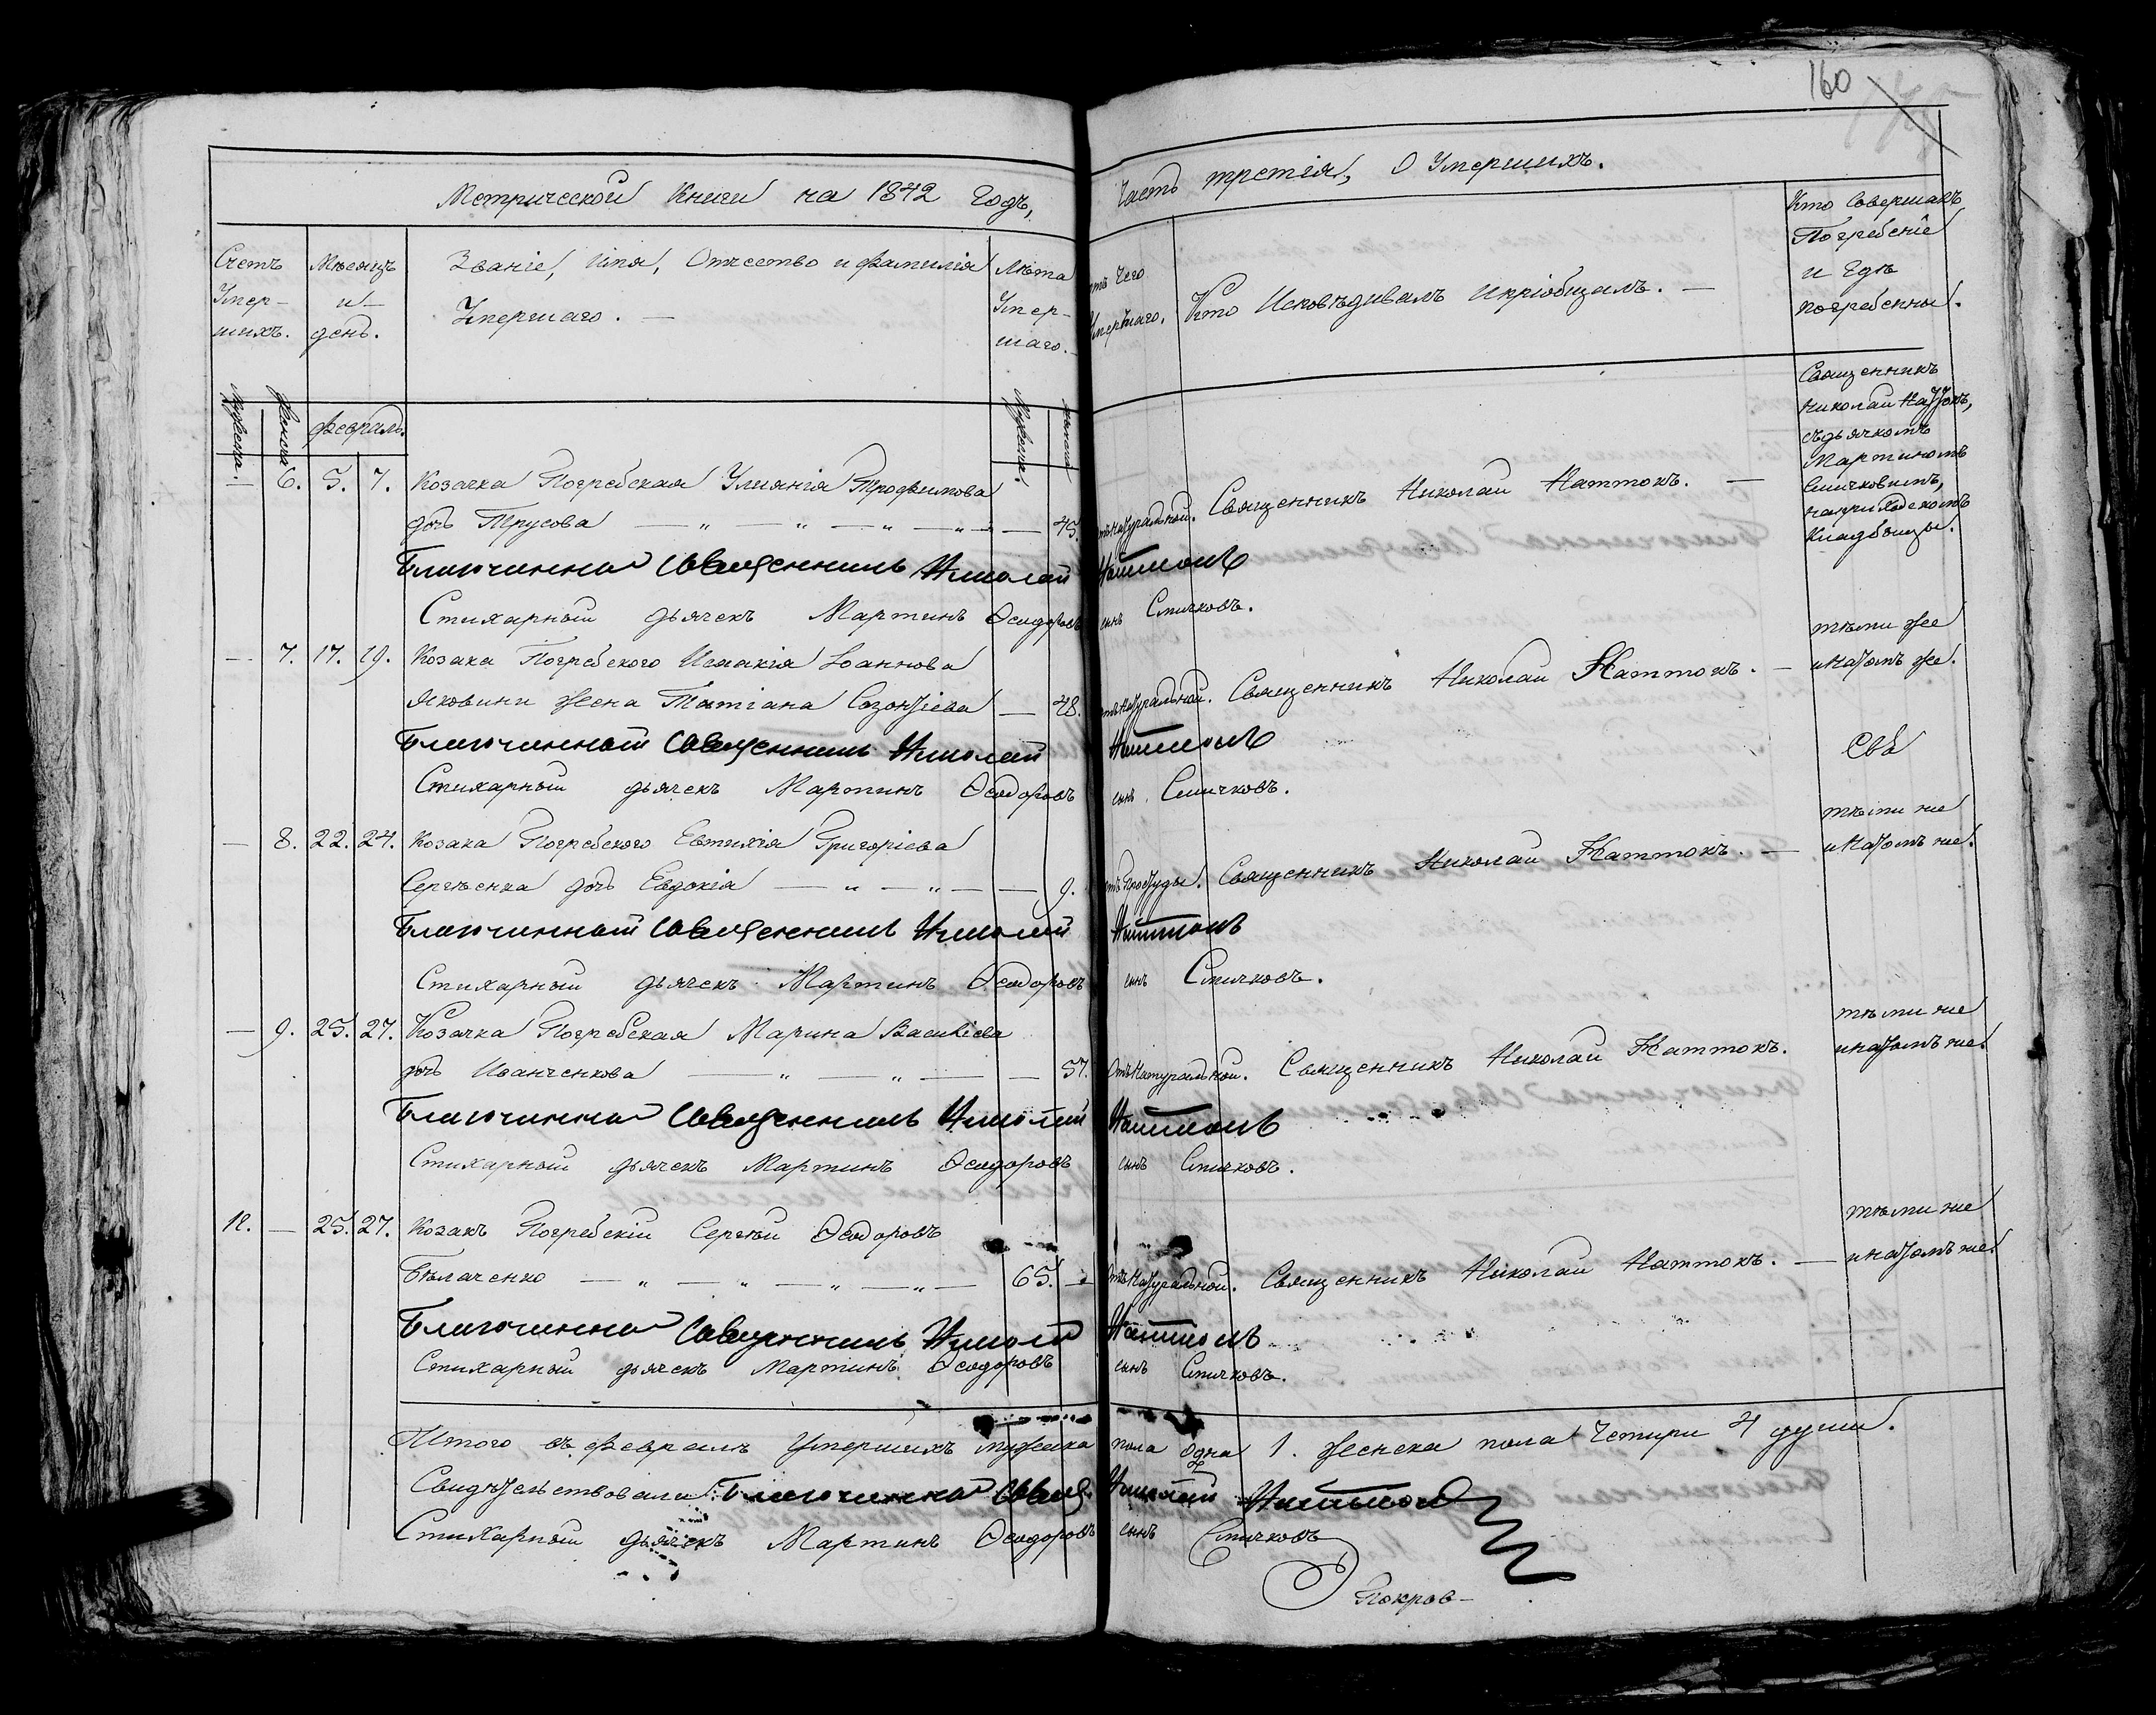 160
Метрической Книги на 1842 Годъ,
Часть третія, О Умершихъ.
Счетъ Умер-шихъ.
Мѣсяцъ и день.
Званіе, Имя, Отчество и фамилія Умершаго. —
Лѣта Умер-шаго.
отъ чего Умершаго.
Кто Исповѣдивалъ и пріобщалъ. —
Кто Совершалъ Погребеніе и Гдѣ погребенны.
Мужеска. Женска Февраль. Мужеска. Женска
— 6. 5. 7. Козачка Погребская Уліянія Трофимова
дочь Трусова — „ — „ — „ — „ — 45. отъ Натуральной. Священникъ Николай Наттокъ. —
Священникъ
Николай Наттокъ,
съ дьячкомъ
Мартиномъ
Спичковимъ,
на приходскомъ
Кладбищѣ.
Благочинный Священникъ Николай Наттокъ
Стихарный дьячекъ Мартинъ Ѳеодоровъ сынъ Спичковъ.
— 7. 17. 19. Козака Погребского Исаакія Іоаннова
Яковини Жена Татіана Созонтіева — 48. отъ Натуральной. Священникъ Николай Наттокъ. —
тѣми же
и на томъ же.
Благочинный Священникъ Николай Наттокъ
Стихарный дьячекъ Мартинъ Ѳеодоровъ сынъ Спичковъ.
— 8. 22. 24. Козака Погребского Евтихія Григоріева
Сергѣенка дочь Евдокія — „ — „ — — 9. отъ Простуды. Священникъ Николай Наттокъ. —
тѣми же
и на томъ же.
Благочинный Священникъ Николай Наттокъ
Стихарный дьячекъ Мартинъ Ѳеодоровъ сынъ Спичковъ.
— 9. 25. 27. Козачка Погребская Марина Василіева
дочь Иванченкова — „ — „ — — 57. Отъ Натуральной. Священникъ Николай Наттокъ.
тѣми же
и на томъ же.
Благочинный Священникъ Николай Наттокъ
Стихарный дьячекъ Мартинъ Ѳеодоровъ сынъ Спичковъ.
12. — 25. 27. Козакъ Погребскій Сергѣй Ѳеодоровъ
Бѣлаченко — „ — „ — „ — „ — 65. — Отъ Натуральной. Священникъ Николай Наттокъ. —
тѣми же
и на томъ же.
Благочинный Священникъ Николай Наттокъ
Стихарный дьячекъ Мартинъ Ѳеодоровъ сынъ Спичковъ.
Итого въ февралѣ Умершихъ мужеска пола одна 1. женска пола Четири 4 души.
Свидѣтельствовали: Благочинный Свящ. Николай Наттокъ
Стихарный дьячекъ Мартинъ Ѳеодоровъ сынъ Спичковъ
Покров-